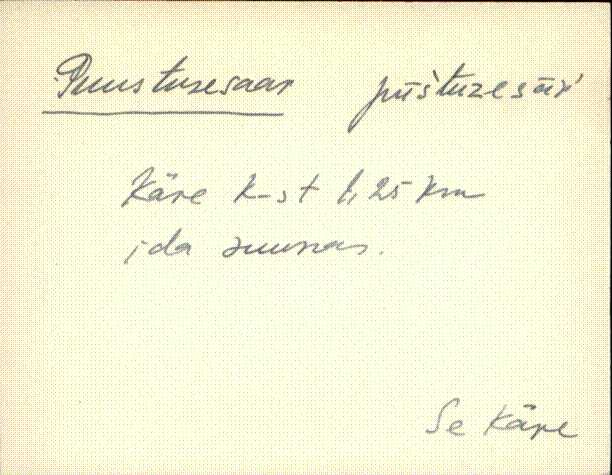 Puustusesaar püštuzesār
Käre k-st 1,25 km
ida suunas.
Se Käre